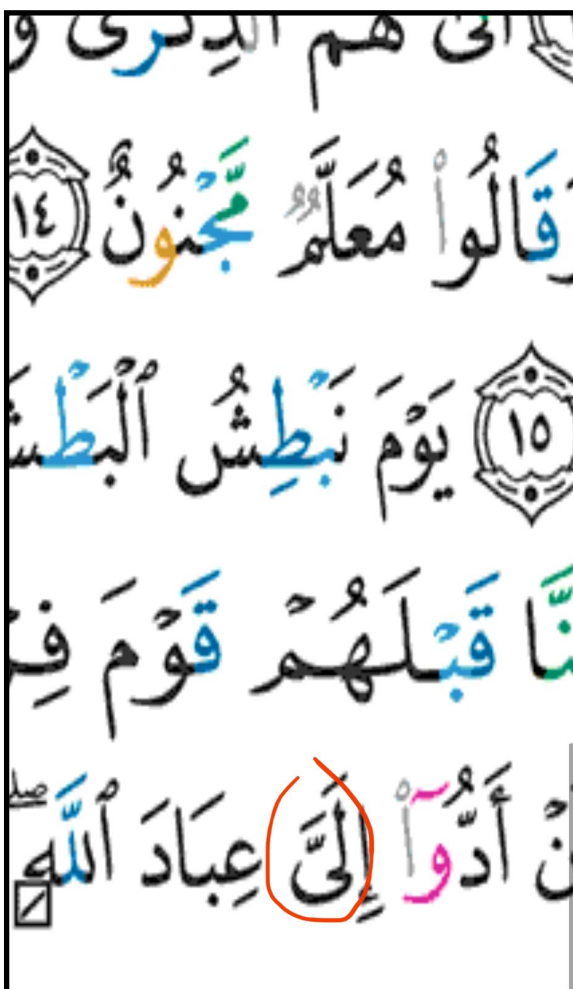 أَنَّىٰ لَهُمُ ٱلذِّكْرَىٰ وَ
وَقَالُوا۟ مُعَلَّمٌ مَّجْنُونٌ ١٤
١٥ يَوْمَ نَبْطِشُ ٱلْبَطْشَ
نَّا قَبْلَهُمْ قَوْمَ فِرْ
نْ أَدُّوٓا۟ إِلَىَّ عِبَادَ ٱللَّهِ ۖ